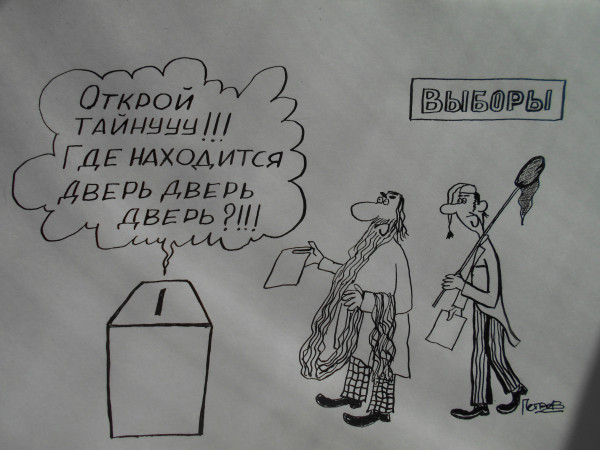 Открой
тайнууу!!!
Где находится
дверь дверь
дверь?!!!
Выборы